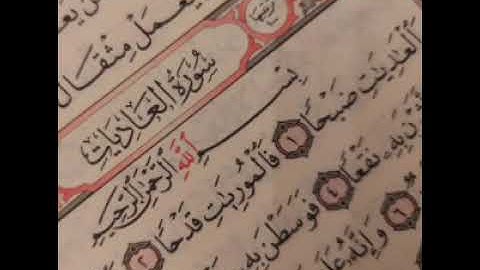 يَعْمَلْ مِثْقَالَ
سُورَةُ الْعَادِيَاتِ
بِسْمِ اللَّهِ الرَّحْمَٰنِ الرَّحِيمِ
الْعَادِيَاتِ ضَبْحًا ١ فَالْمُورِيَاتِ قَدْحًا ٢
بِهِ نَقْعًا ٤ فَوَسَطْنَ بِهِ
٦ وَإِنَّهُ عَلَىٰ